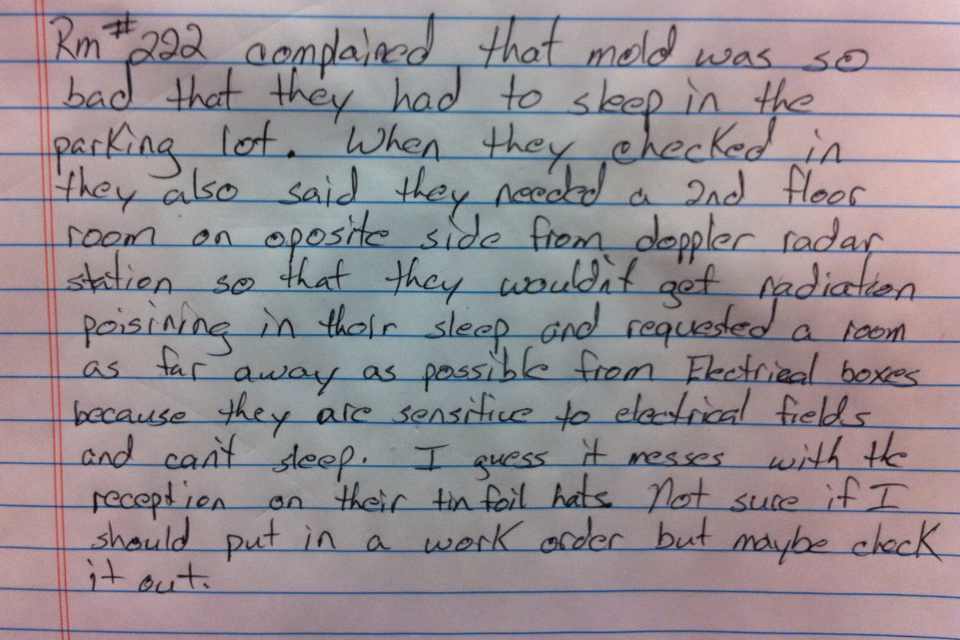 Rm #222 complained that mold was so
bad that they had to sleep in the
parking lot. When they checked in
they also said they needed a 2nd floor
room on oposite side from doppler radar
station so that they wouldn't get radiation
poisining in their sleep and requested a room
as far away as possible from Electrical boxes
because they are sensitive to electrical fields
and can't sleep. I guess it messes with the
reception on their tin foil hats. Not sure if I
should put in a work order but maybe check
it out.